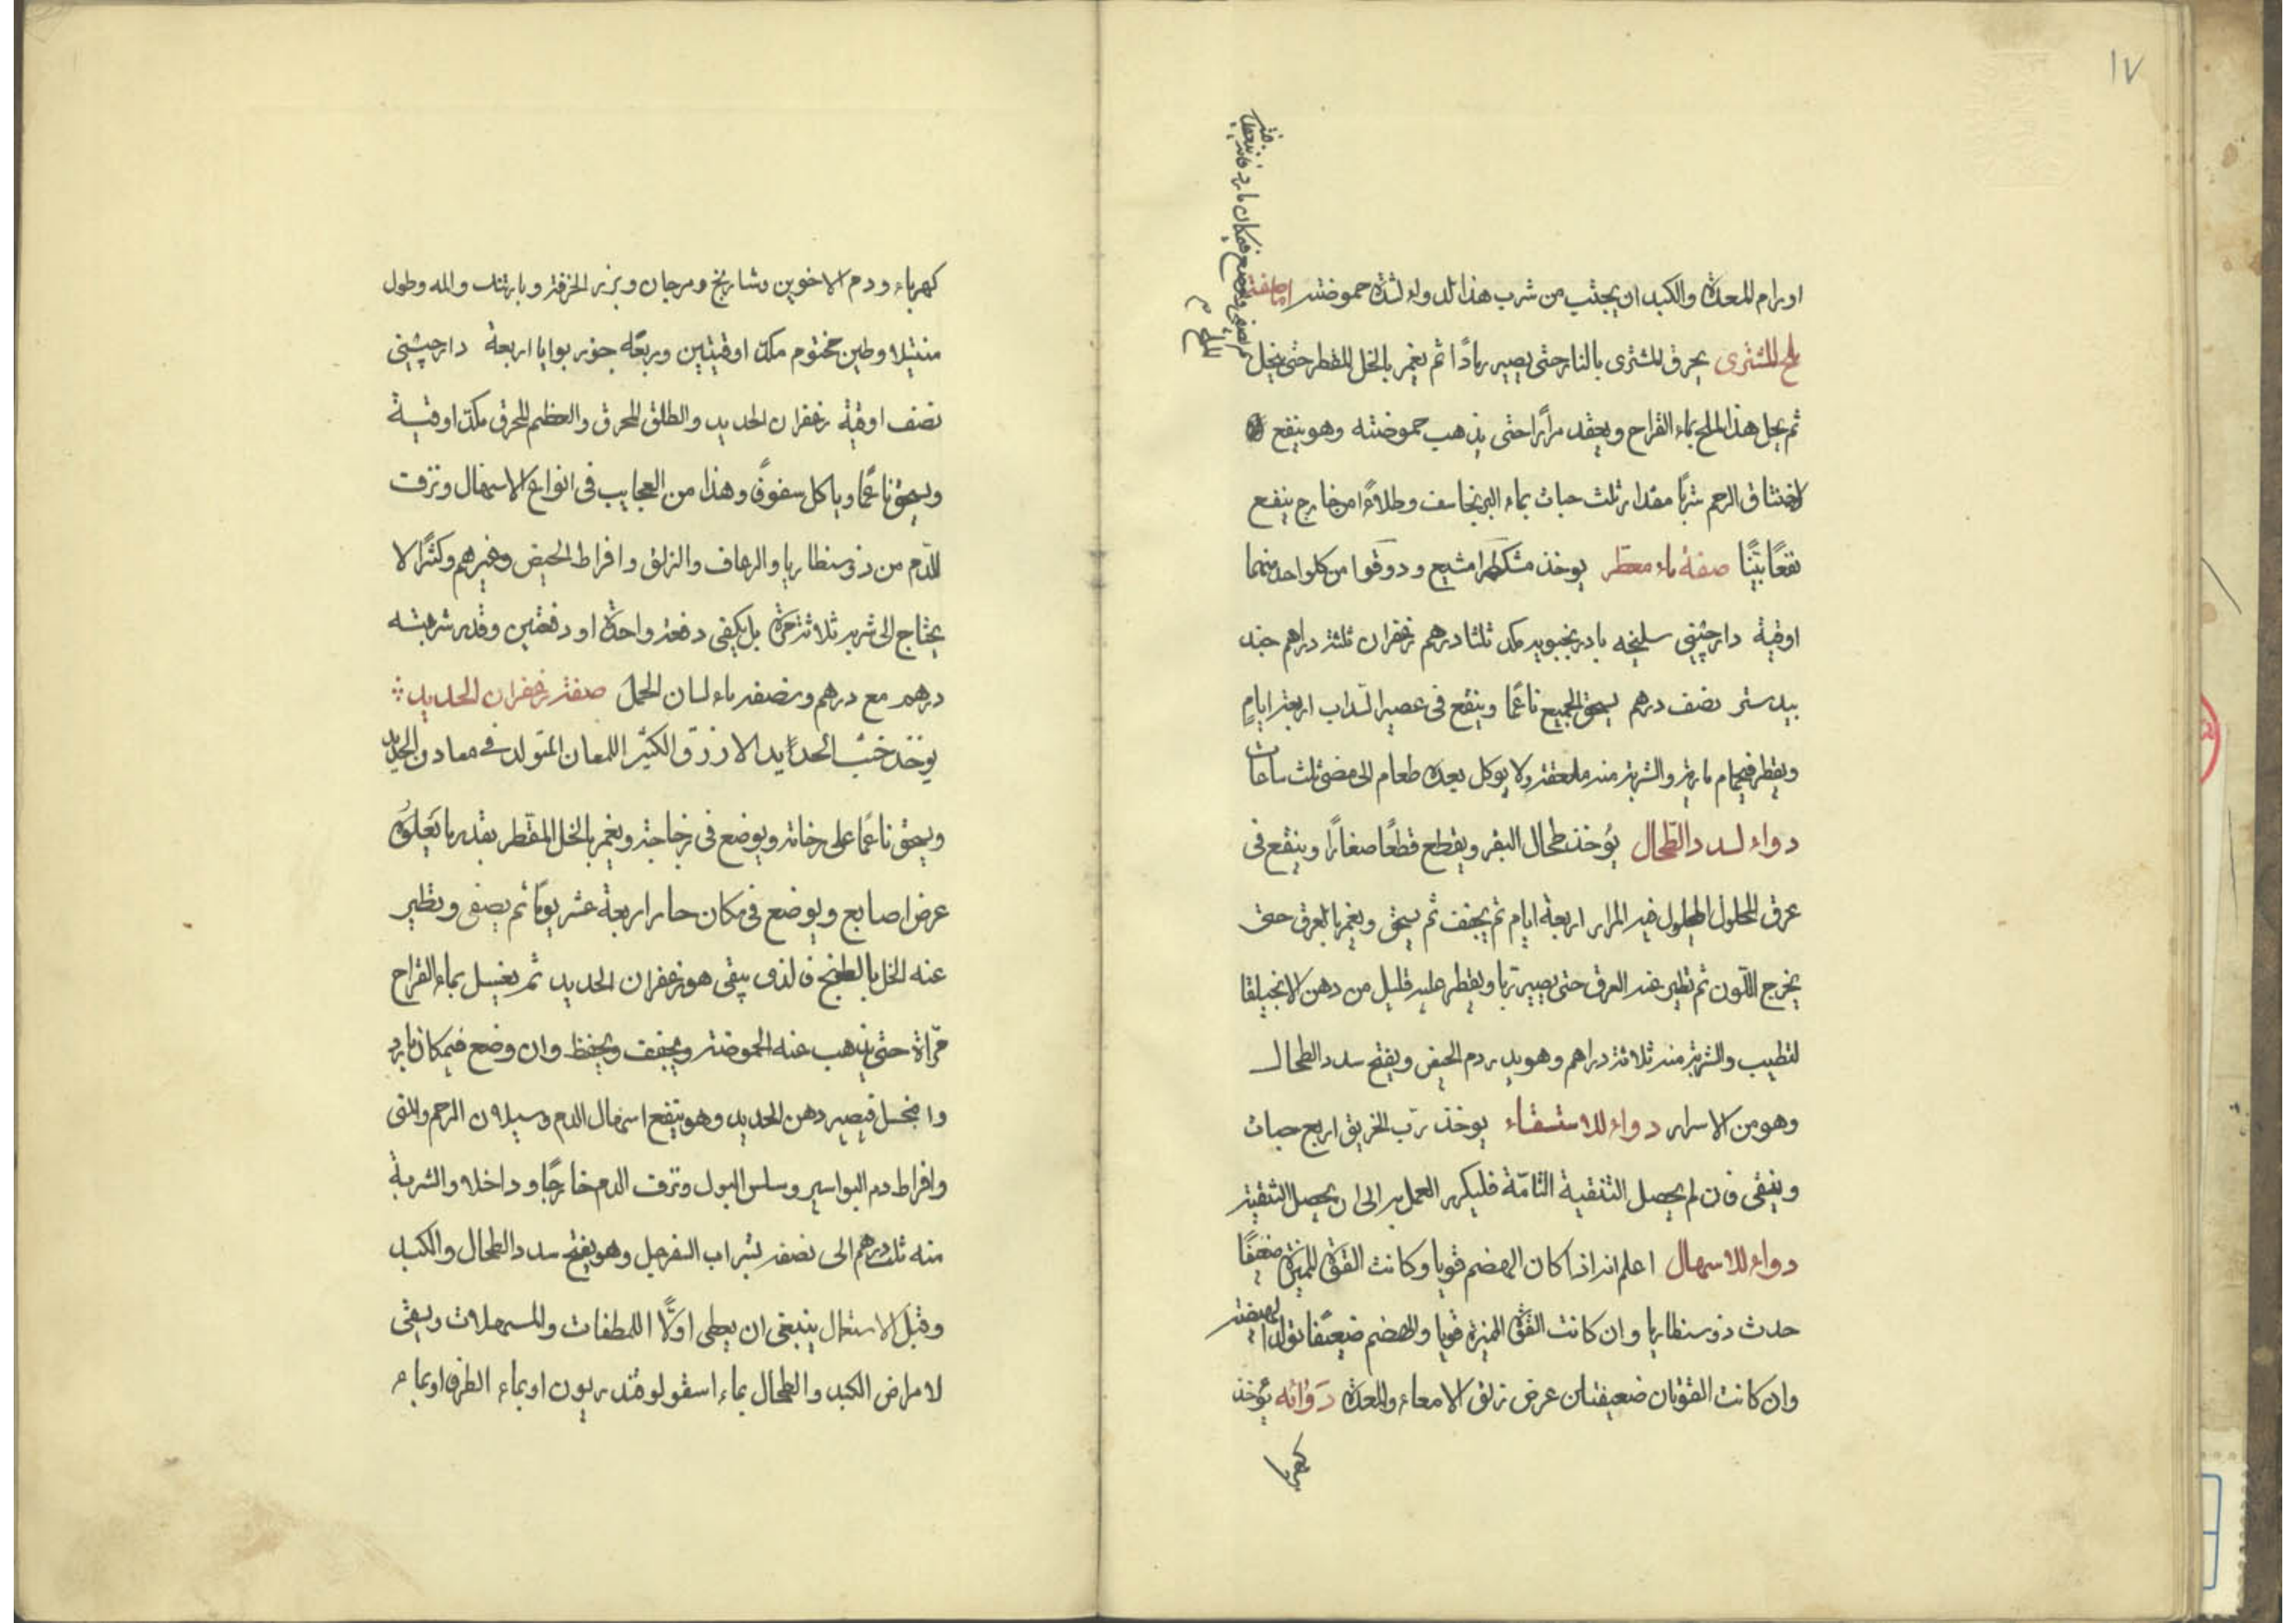 ١٧
اورام المعدة والكبد ان يجتنب من شرب هذا الدواء لشدة حموضته اما صفة
ملح المشترى يحرق المشترى بالنار حتى يصير رمادًا ثم يغمر بالخل المقطر حتى ينحل
ثم يصفى ويوضع فى مكان بارد فانه ينعقد فيه الملح
ثم يحل هذا الملح بماء القراح ويعقد مرارًا حتى يذهب حموضته وهو ينفع
لاختناق الرحم شربًا مقدار ثلث حبات بماء البرنجاسف وطلاءً من خارج ينفع
نفعًا بيّنًا صفة ماء معطر يوخذ مشكطرامشيع ودوقوا من كلواحد منهما
اوقية دارچينى سليخه بادرنجبويه مكد ثلثا درهم زعفران ثلثة دراهم جند
بيدستر نصف درهم يسحق الجميع ناعمًا وينقع فى عصير السداب اربعة ايامٍ
ويقطر فيحمام مارية والشربة منه ملعقة ولا يوكل بعده طعام الى مضى ثلث ساعات
دواء لسدد الطحال يُوخذ طحال البقر ويقطع قطعًا صغارًا وينقع فى
عرق المحلول المحلول فيه المرار اربعة ايام ثم يجفف ثم يسحق ويغمر بالعرق حتى
يخرج اللون ثم تطير عنه العرق حتى يصير ربا ويقطر عليه قليل من دهن الانجيلقا
لتطيب والشربة منه ثلاثة دراهم وهو يدر دم الحيض ويفتح سدد الطحال
وهو من الاسرار دواء للاستسقاء يوخذ ربّ الخربق اربع حبات
وينقى فان لم يحصل التنقية التامّة فليكرر العمل به الى ان يحصل التنقية
دواء للاسهال اعلم انه اذا كان الهضم قويا وكانت القوة المميزة ضعيفًا
حدث ذوسنطاريا وان كانت القوة المميزة قويا والهضم ضعيفًا تولد الهيضة
وان كانت القوتان ضعيفتان عرض زلق الامعاء والمعدة دوائه يُوخذ
كهرباء
كهرباء ودم الاخوين وشاربخ ومرجان وبزر الخرفة وبارتنك والمه وطول
منتيلا وطين مختوم مكد اوقيتين وربعه جوز بوايا اربعة دارچينى
نصف اوقية زعفران الحديد والطلق المحرق والعظم المحرق مكد اوقية
ويسحق ناعمًا وياكل سفوفً وهذا من العجايب فى انواع الاسهال ونزفت
الدم من ذوسنطاريا والرعاف والزلق وافراط الحيض وغيرهم وكثرًا لا
يحتاج الى شربه ثلاثة مرة بل يكفى دفعة واحدة او دفعتين وقدر شربته
درهم مع درهم ونصف ماء لسان الحمل صفة زعفران الحديد
يوخذ خبث الحدايد الازرق الكثير اللمعان المتولد فے معادن الحديد
ويسحق ناعمًا على رخامة ويوضع فى زجاجة ويغمر بالخل المقطر بقدر ما يَعلُوه
عرض اصابع ويوضع فى مكان حار اربعة عشر يومًا ثم يصفى ويطير
عنه الخل بالطبخ فالذى يبقى هو زعفران الحديد ثم يغسل بماء القراح
مرّاة حتى يذهب عنه الحموضة ويجفف ويحفظ وان وضع فيمكان بارد
وانحل فيصير دهن الحديد وهو ينفع اسهال الدم وسيلان الرحم والمنى
وافراط دم البواسير وسلس البول ونزف الدم خارجًا وداخلا والشربة
منه ثلث درهم الى نصف بشراب السفرجل وهو يفتح سدد الطحال والكبد
وقبل الاستعمال ينبغى ان يعطى اولًا الملطفات والمسهلات ويسقى
لامراض الكبد والطحال بماء اسقولوقندريون او بماء الطرفا او بماء